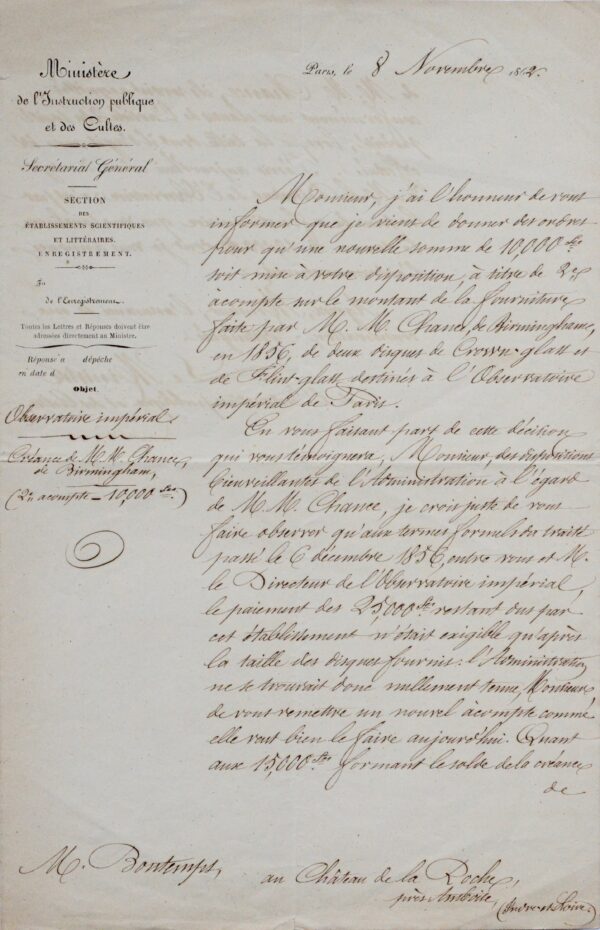 Ministère
de l'Instruction publique
et des Cultes.
Secrétariat Général
SECTION
DES
ÉTABLISSEMENTS SCIENTIFIQUES
ET LITTÉRAIRES.
ENREGISTREMENT.
No
de l'Enregistrement.
Toutes les Lettres et Réponses doivent être
adressées directement au Ministre.
Réponse à dépêche
en date d
Objet
Observatoire impérial
Créance de M.M. Chance,
de Birmingham,
(2e acompte - 10,000 fcs)
Paris, le 8 Novembre 1862.
Monsieur, j'ai l'honneur de vous
informer que je viens de donner des ordres
pour qu'une nouvelle somme de 10,000 fcs
soit mise à votre disposition, à titre de 2e
àcompte sur le montant de la fourniture
faite par M. M. Chance, de Birmingham,
en 1856, de deux disques de Crown-glass et
de Flint-glass destinés à l'Observatoire
impérial de Paris.
En vous faisant part de cette décision
qui vous témoignera, Monsieur, des dispositions
bienveillantes de l'Administration à l'égard
de M. M. Chance, je crois juste de vous
faire observer qu'aux termes formels du traité
passé le 6 décembre 1856, entre vous et M.
le Directeur de l'Observatoire impérial,
le paiement des 25,000 fcs restant dus par
cet établissement n'était exigible qu'après
la taille des disques fournis: l'Administration
ne se trouvait donc nullement tenue, Monsieur,
de vous remettre un nouvel àcompte comme
elle veut bien le faire aujourd'hui. Quant
aux 15,000 fcs formant le solde de la créance
de
M. Bontemps,
au Château de la Roche,
près Amboise,
(Indre et Loire)